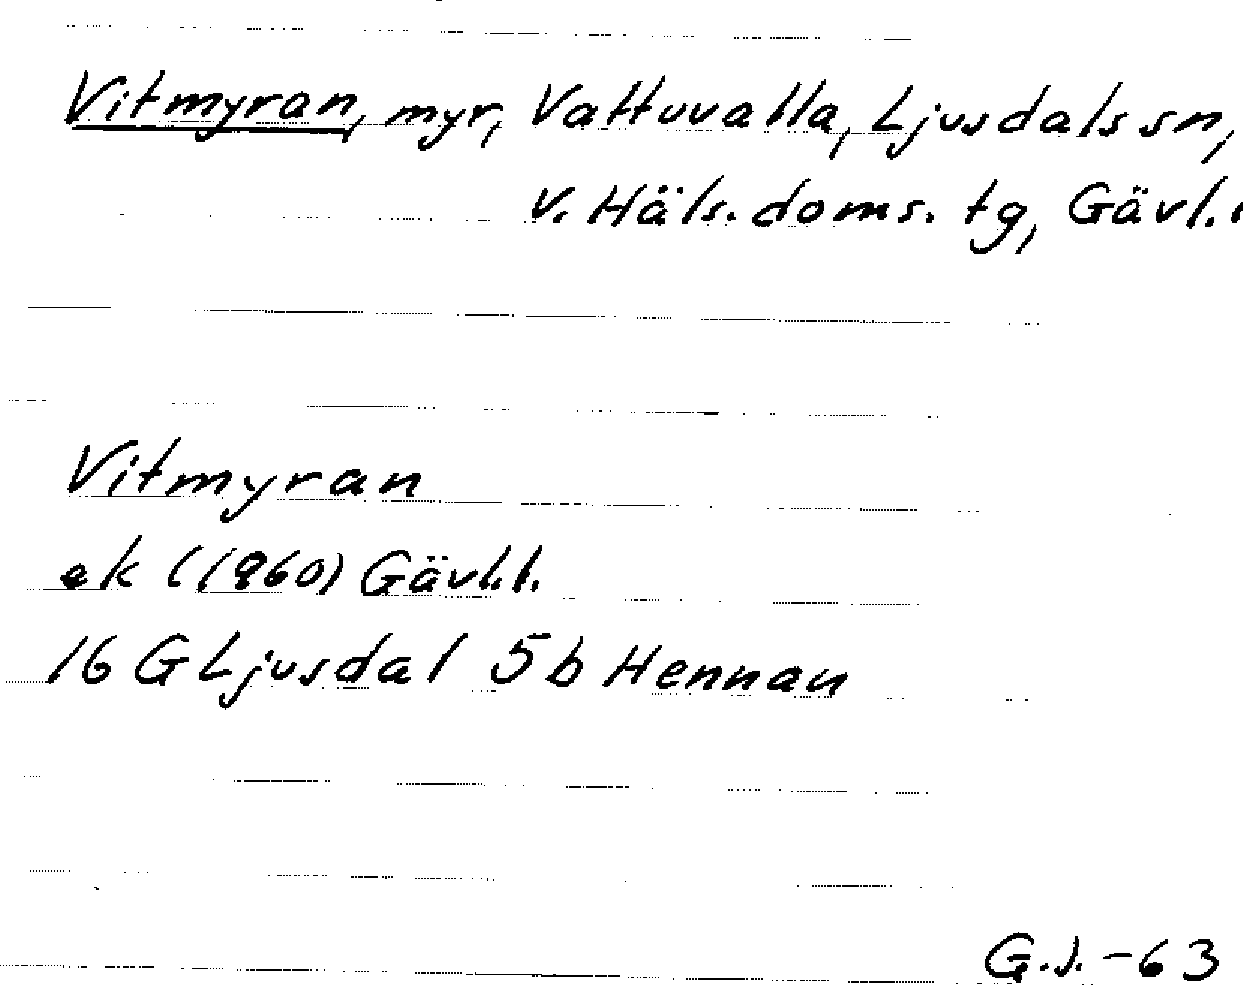 Vitmyran, myr, Vattuvalla, Ljusdals sn,
V. Häls. doms. tg, Gävl. l
Vitmyran
ek (1960) Gävl.l.
16 G Ljusdal 5b Hennan
G.J.-63